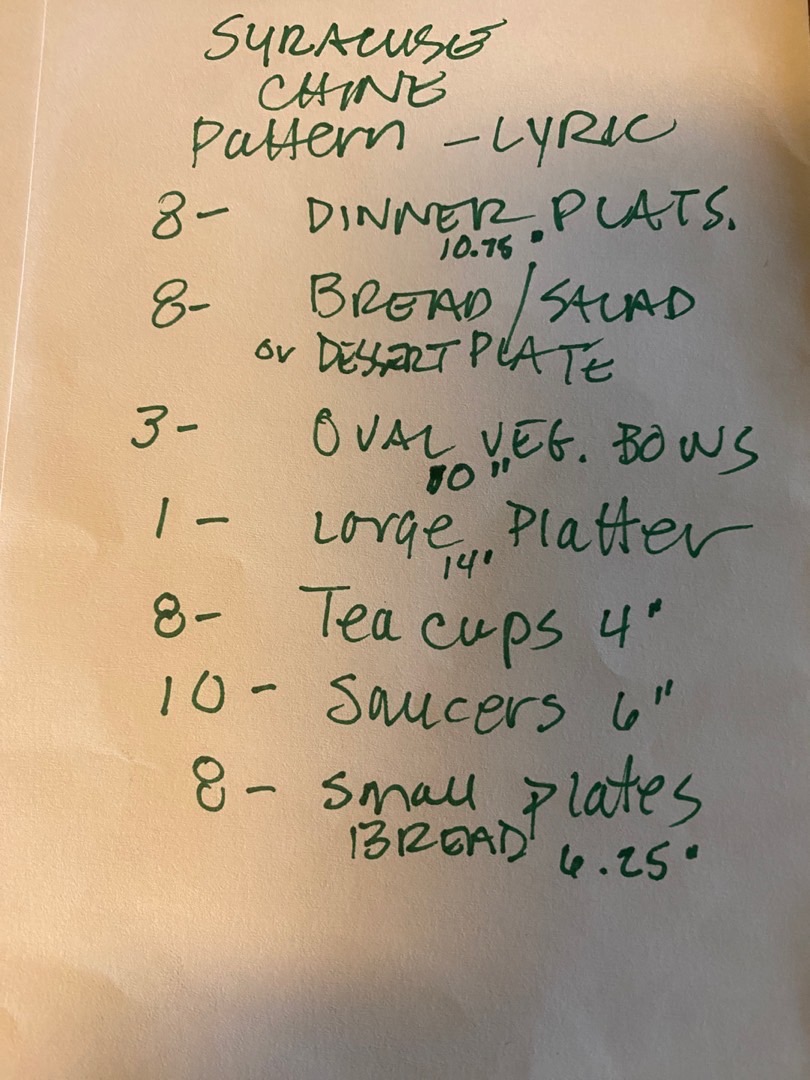 SYRACUSE
CHINE
Pattern - LYRIC
8- DINNER PLATS.
10.75"
8- BREAD/SALAD
or DESSERT PLATE
3- OVAL VEG. BOWS
10"
1- Large Platter
14"
8- Tea cups 4"
10- Saucers 6"
8- small plates
BREAD 6.25"